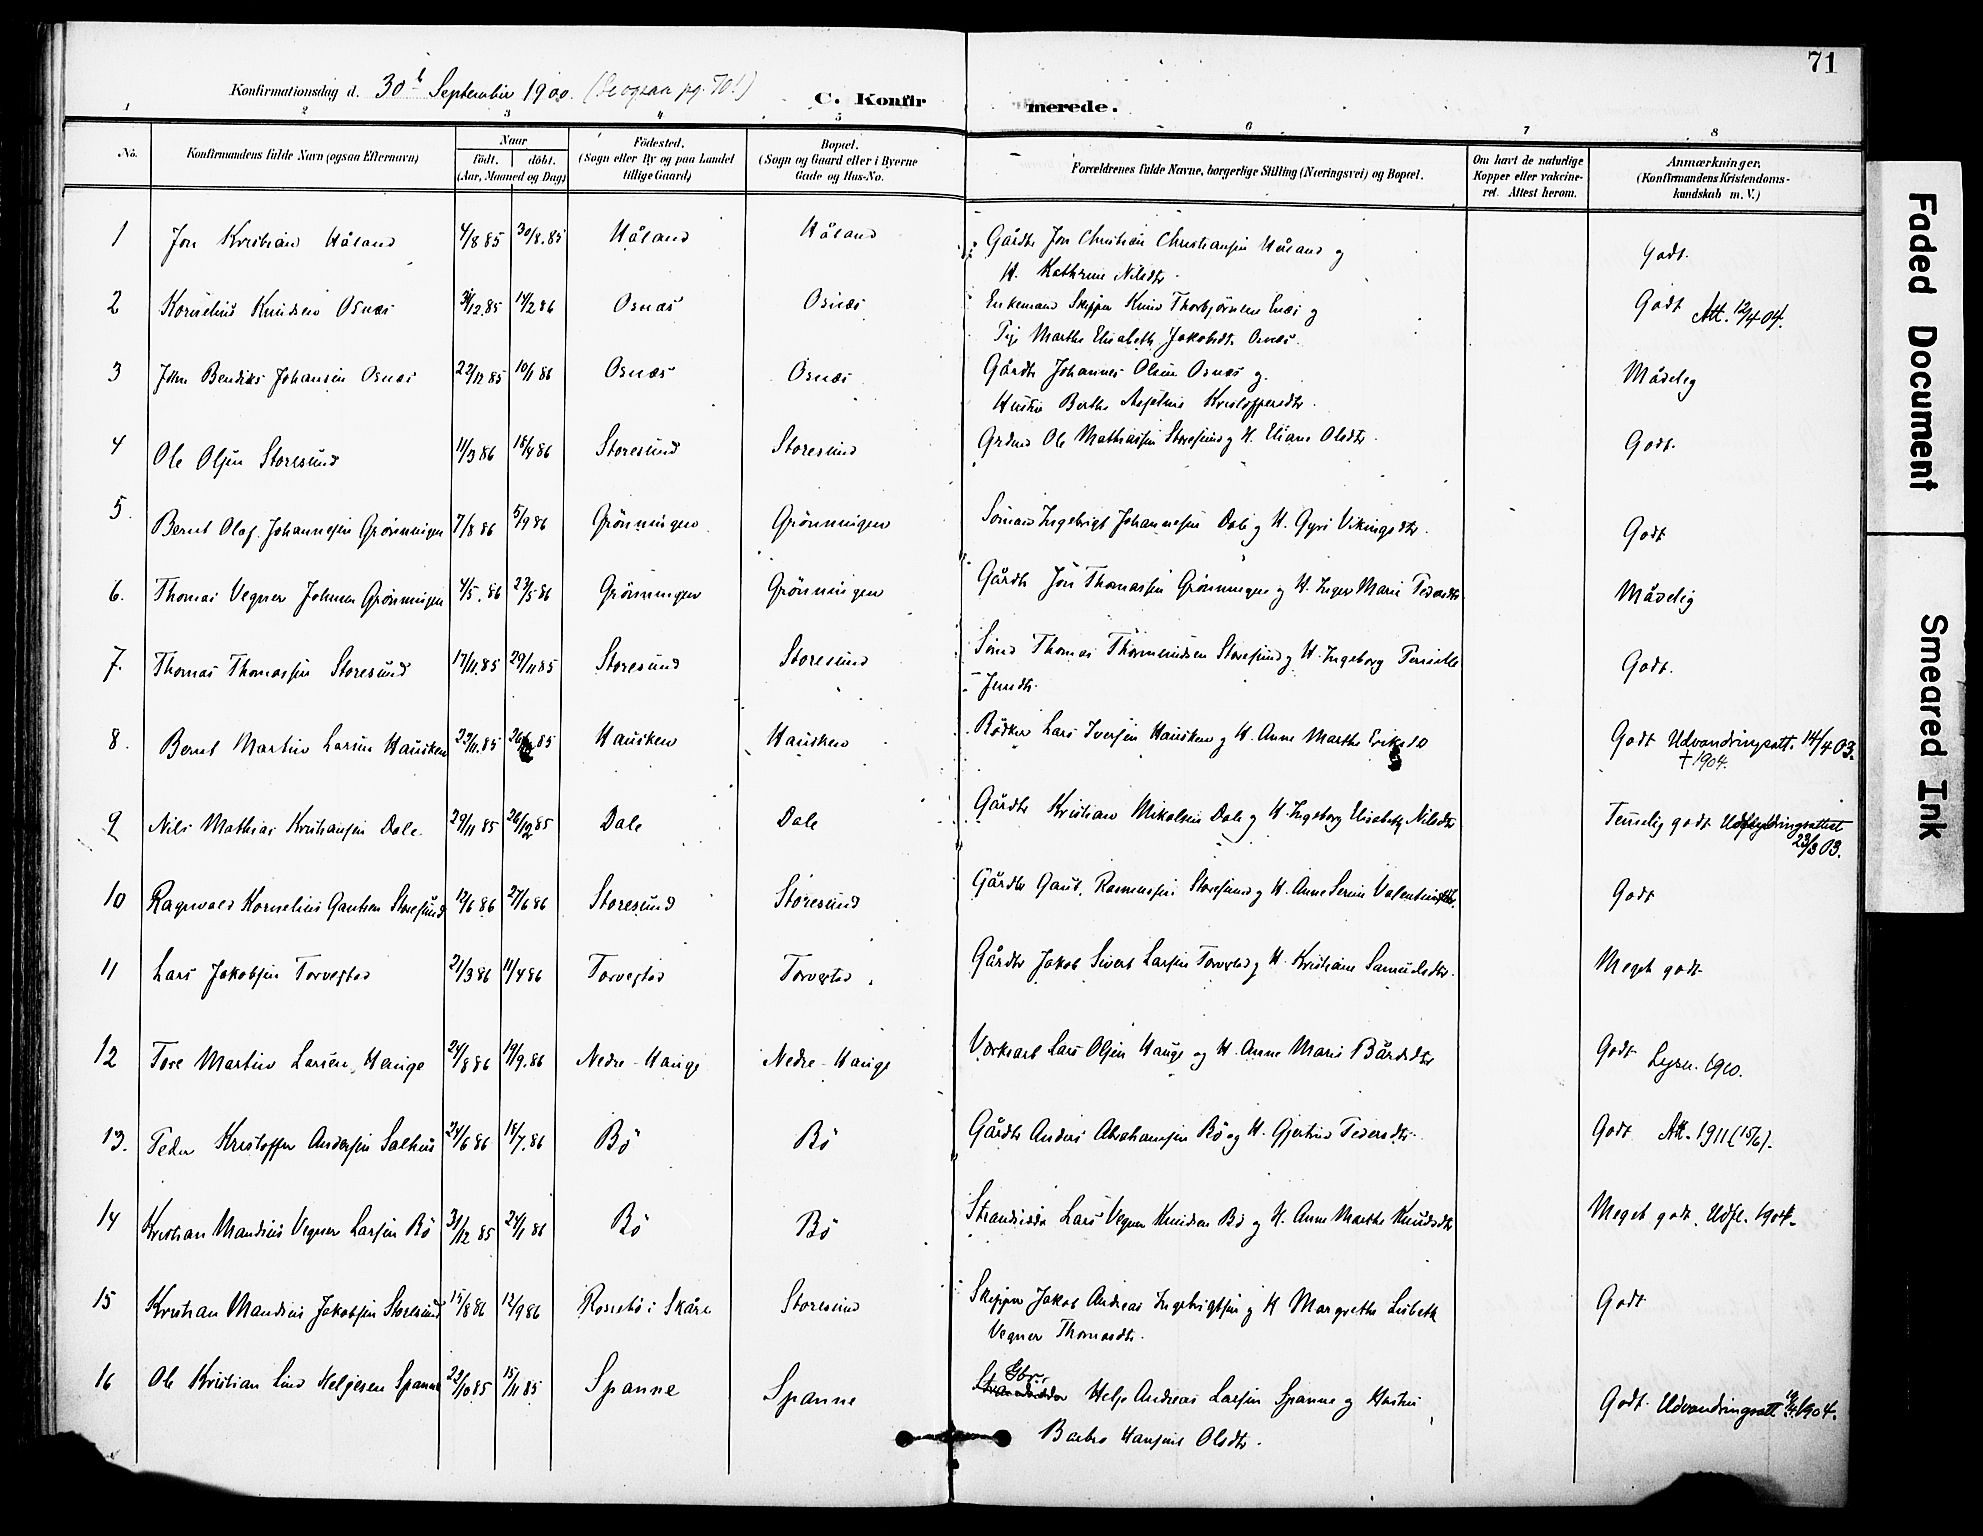 71
Konfirmationsdag d. 30te September 1900. (Se ogsaa pg. 70!)
C. Konfirmerede.
1 2 3 4 5 6 7 8
No.
Konfirmandens fulde Navn (ogsaa Efternavn)
Naar
födt. döbt.
(Aar, Maaned og Dag)
Födested.
(Sogn eller By og paa Landet
tillige Gaard)
Bopæl.
(Sogn og Gaard eller i Byerne
Gade og Hus-No.
Forældrenes fulde Navne, borgerlige Stilling (Næringsvei) og Bopæl.
Om havt de naturlige
Kopper eller vakcine-
ret. Attest herom.
Anmærkninger,
(Konfirmandens Kristendoms-
kundskab m. V.)
1 Jon Kristian Håland 4/8 85 30/8.85 Håland Håland Gårdbr Jon Christian Christiansen Håland og Godt.
H. Kathrine Nilsdtr.
2 Kornelius Knudsen Osnæs 31/12.85 14/2 86 Osnæs Osnæs Enkemand Skipper Knud Thorbjørnsen og Godt Att. 12/4 04.
Pige Marthe Elisabeth Jakobsdt. Osnæs.
3 John Bendiks Johansen Osnæs 22/12 85 10/1 86 Osnæs Osnæs Gårdbr Johannes Olsen Osnæs og Mådelig
Hustru Berthe Kristoffersdtr.
4 Ole Olsen Storesund 11/3 86 18/4 86 Storesund Storesund Ole Mathiassen Storesund og H. Eliane Olsdtr. Godt.
5. Bernt Olaf Johannessen Grönningen 7/8 86 5/9 86 Grönningen Grönningen Sömand Ingebrigt Johannessen Dale og H. Gyri Vikingsdtr. Godt
6. Thomas Vegner Johnsen Grönningen 4/5.86 23/5 86 Grönningen Grönningen Gårdbr Jon Thomassen Grönningen og H. Inger Marie Pedersdtr Mådelig
7. Thomas Thomassen Storesund 17/11.85 29/11 85 Storesund Storesund Sömd Thomas Thormundsen Storesund og H. Ingeborg Pernille Godt.
Jensdtr.
8. Bernt Martin Larsen Hausken 23/11.85 85 Hausken Hausken Bödker Lars Iversen Hausken og H. Anne Marthe Godt Udvandringsatt. 14/4 03.
† 1904.
9 Nils Mathias Kristiansen Dale 29/11 85 26/12 85 Dale Dale Gårdbr Kristian Mikalsen Dale og H. Ingeborg Elisabeth Nilsdtr Temelig godt
23/3 03.
10 Ragnvald Kornelius Gautsen Storesund 12/6 86 27/6 86 Storesund Storesund Gårdbr Gaut Rasmussen Storesund og H. Anne Serine Valentinsdtr. Godt
11 Lars Jakobsen Torvestad 21/3 86 11/4 86 Torvestad Torvestad Gårdbr Jakob Sivert Larsen Torvestad og H. Kristiane Samuelsdtr. Meget godt
12 Tore Martin Larsen Hauge 24/8 86 19/9.86 Nedre-Hauge Nedre-Hauge Lars Olsen Hauge og H. Anne Marie Bårdsdtr Godt Lysn. 1910.
13. Peder Kristoffer Andersen Salhus 24/6 86 18/7.86 Bö Bö Gårdbr Anders Abrahamsen Bö og H. Gjertrud Pedersdtr. Godt Att. 1911 (15/6).
14 Kristian Mandius Vegner Larsen Bö 31/12 85 24/1 86 Bö Bö Strandsidder Lars Vegner Knudsen Bö og H. Anne Marthe Knudsdtr Meget godt. Udfl. 1904.
15 Kristian Mandius Jakobsen Storesund 15/8 86 12/9 86 Rossebö i Skåre Storesund Skipper Jakob Andreas Ingebrigtsen og H Margrethe Lisbeth Godt
Vegner Thomasdtr.
16 Ole Kristian Lind Helgesen Spanne 23/10 85 15/11 85 Spanne Spanne Strandsidder Gbr. Helge Andreas Larsen Spanne og Hustru Godt. Udvandringsatt 1904.
Barbro Hansine Olsdtr.
Faded Document
Smeared Ink